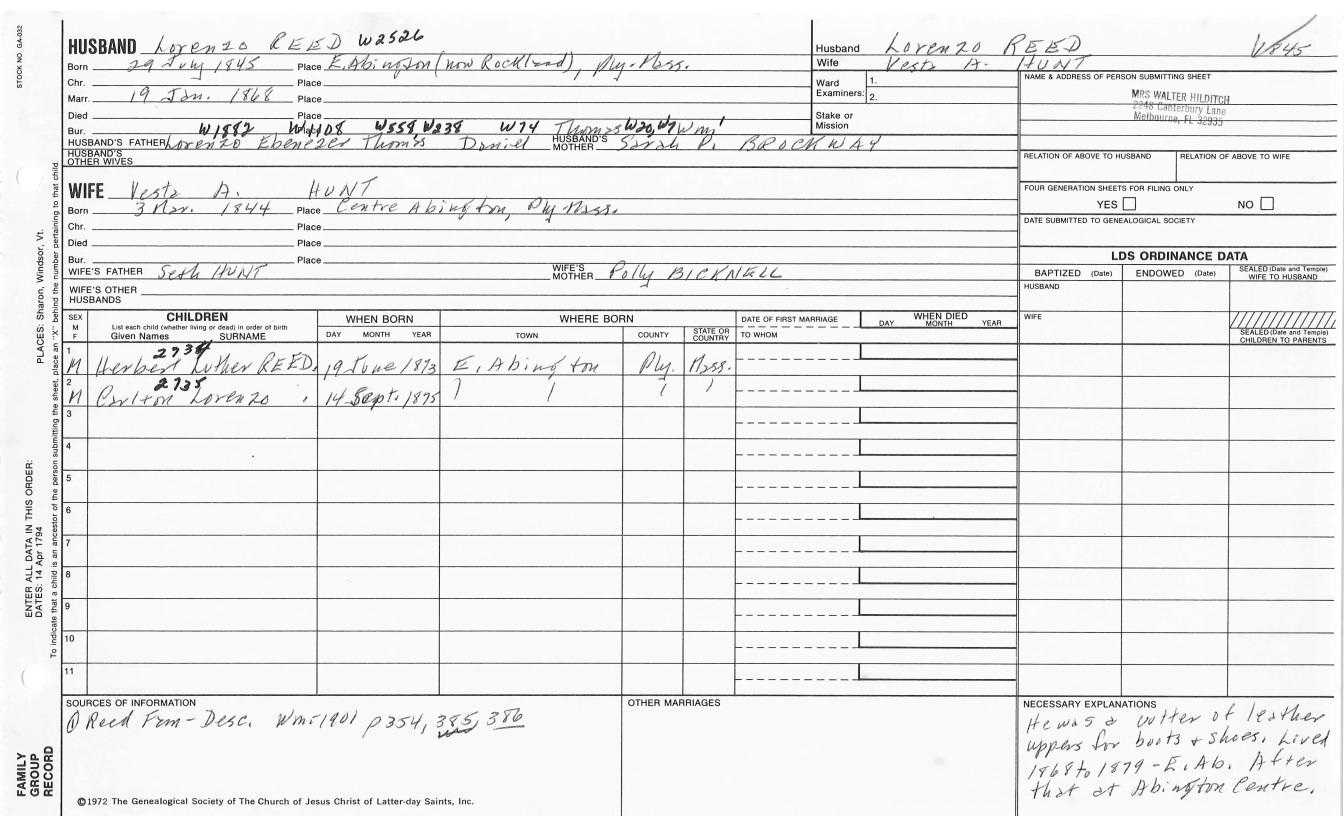 STOCK NO. GA-032
HUSBAND Lorenzo REED W2526
Born 29 July 1845 Place E. Abington (now Rockland), Ply. Mass.
Chr. Place
Marr. 19 Jan. 1868 Place
Died Place
Bur. Place
W1882 W1108 W558, W238 W74 Thomas W20, W7 Wm'
HUSBAND'S FATHER Lorenzo Ebenezer Thomas Daniel HUSBAND'S MOTHER Sarah P. BROCKWAY
HUSBAND'S OTHER WIVES
Husband Lorenzo REED
Wife Vesta A. HUNT
Ward Examiners: 1.
2.
Stake or Mission
NAME & ADDRESS OF PERSON SUBMITTING SHEET
MRS WALTER HILDITCH
2248 Canterbury Lane
Melbourne, FL 32935
RELATION OF ABOVE TO HUSBAND RELATION OF ABOVE TO WIFE
FOUR GENERATION SHEETS FOR FILING ONLY
YES NO
DATE SUBMITTED TO GENEALOGICAL SOCIETY
WIFE Vesta A. HUNT
Born 3 Mar. 1844 Place Centre Abington, Ply Mass.
Chr. Place
Died Place
Bur. Place
WIFE'S FATHER Seth HUNT WIFE'S MOTHER Polly BICKNELL
WIFE'S OTHER HUSBANDS
LDS ORDINANCE DATA
BAPTIZED (Date) ENDOWED (Date) SEALED (Date and Temple) WIFE TO HUSBAND
HUSBAND
WIFE
SEALED (Date and Temple) CHILDREN TO PARENTS
SEX M F
CHILDREN
List each child (whether living or dead) in order of birth
Given Names SURNAME
WHEN BORN
DAY MONTH YEAR
WHERE BORN
TOWN COUNTY STATE OR COUNTRY
DATE OF FIRST MARRIAGE
TO WHOM
WHEN DIED
DAY MONTH YEAR
2734
1 M Herbert Luther REED. 19 June 1873 E. Abington Ply. Mass.
2735
2 M Carlton Lorenzo 14 Sept. 1875
3
4
5
6
7
8
9
10
11
SOURCES OF INFORMATION
① Reed Fam- Desc. Wm-1901 p354, 385, 386
OTHER MARRIAGES
NECESSARY EXPLANATIONS
He was a cutter of leather
uppers for boots & shoes. Lived
1868 to 1879 - E. Ab. After
that at Abington Centre.
©1972 The Genealogical Society of The Church of Jesus Christ of Latter-day Saints, Inc.
PLACES: Sharon, Windsor, Vt.
To indicate that a child is an ancestor of the person submitting the sheet, place an "X" behind the number pertaining to that child.
ENTER ALL DATA IN THIS ORDER:
DATES: 14 Apr 1794
FAMILY
GROUP
RECORD